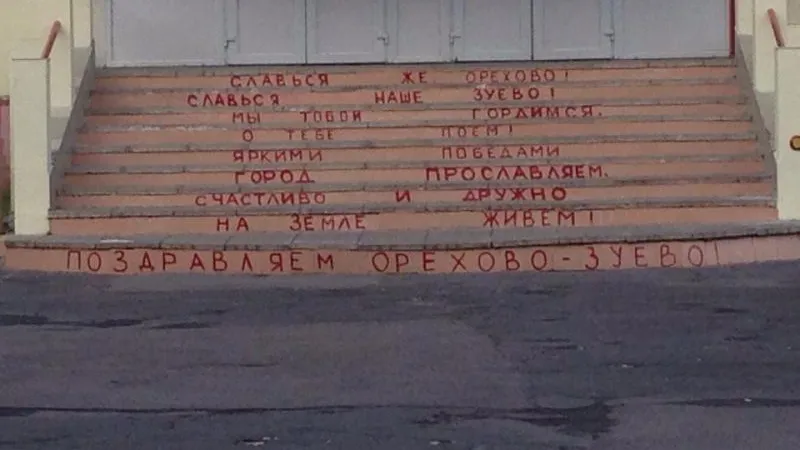 СЛАВЬСЯ ЖЕ ОРЕХОВО!
СЛАВЬСЯ НАШЕ ЗУЕВО!
МЫ ТОБОЙ ГОРДИМСЯ.
О ТЕБЕ ПОЕМ!
ЯРКИМИ ПОБЕДАМИ
ГОРОД ПРОСЛАВЛЯЕМ.
СЧАСТЛИВО И ДРУЖНО
НА ЗЕМЛЕ ЖИВЕМ!
ПОЗДРАВЛЯЕМ ОРЕХОВО-ЗУЕВО!